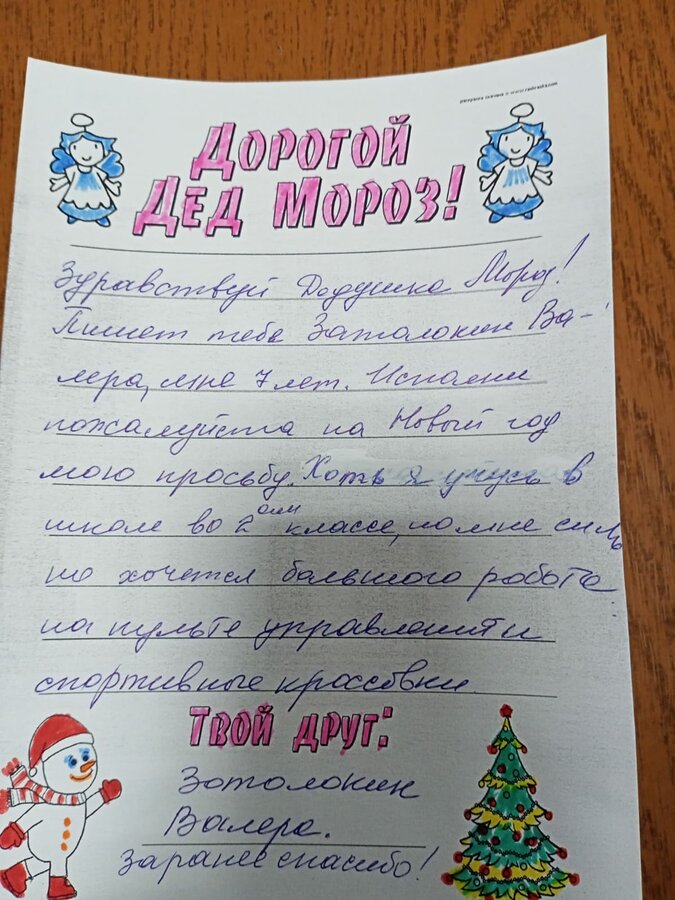 раскраска скачана с www.raskraska.com
ДОРОГОЙ
ДЕД МОРОЗ!
Здравствуй Дедушка Мороз!
Пишет тебе Затолокин Ва-
лера, мне 7 лет. Исполни
пожалуйста на Новый год
мою просьбу. Хоть я учусь в
школе во 2ом классе, но мне силь
но хочется большого робота
на пульте управления и
спортивные кроссовки.
ТВОЙ ДРУГ:
Затолокин
Валера.
Заранее спасибо!